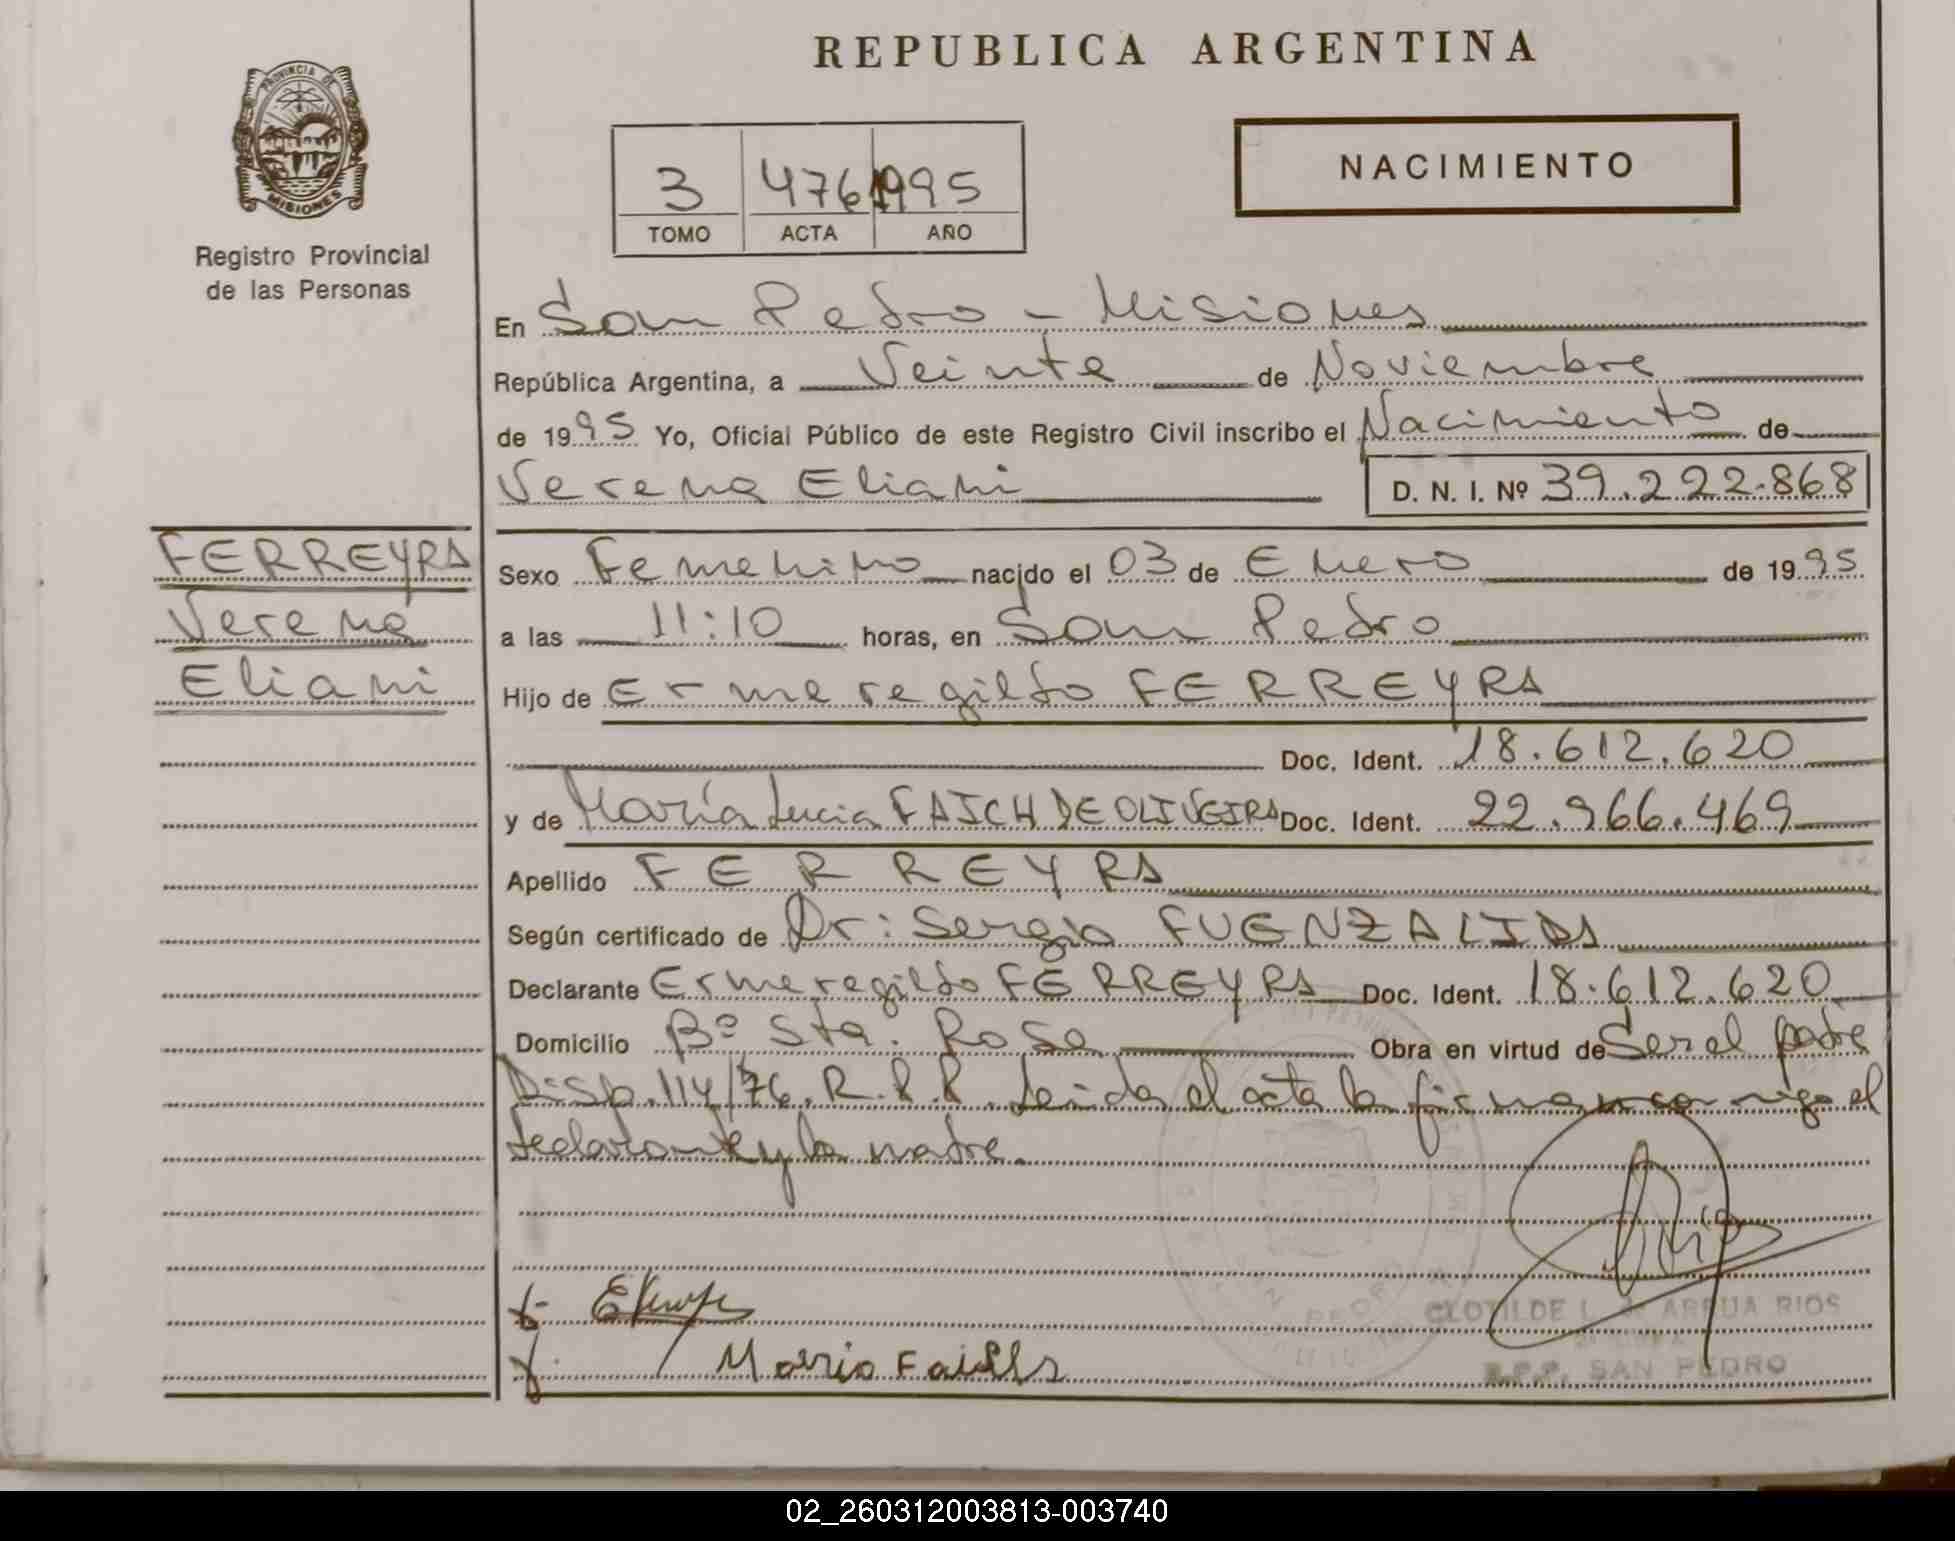 REPUBLICA ARGENTINA
PROVINCIA DE
MISIONES
Registro Provincial
de las Personas
3 476 1995
TOMO ACTA AÑO
NACIMIENTO
En San Pedro - Misiones
República Argentina, a Veinte de Noviembre
de 1995 Yo, Oficial Público de este Registro Civil inscribo el Nacimiento de
Verena Eliani D. N. I. Nº 39.222.868
FERREYRA
Verena
Eliani
Sexo Femenino nacido el 03 de Enero de 1995
a las 11:10 horas, en San Pedro
Hijo de Ermeregildo FERREYRA
Doc. Ident. 18.612.620
y de María Lucia FAICH DE OLIVEIRA Doc. Ident. 22.966.469
Apellido FERREYRA
Según certificado de Dr: Sergio FUENZALIDA
Declarante Ermeregildo FERREYRA Doc. Ident. 18.612.620
Domicilio Bº Sta. Rosa Obra en virtud de Ser el padre
Disp. 114/76. R.P.P. Leida el acta la firman conmigo el
declarante y la madre.
María
CLOTILDE ARRUA RIOS
R.P.P. SAN PEDRO
02_260312003813-003740